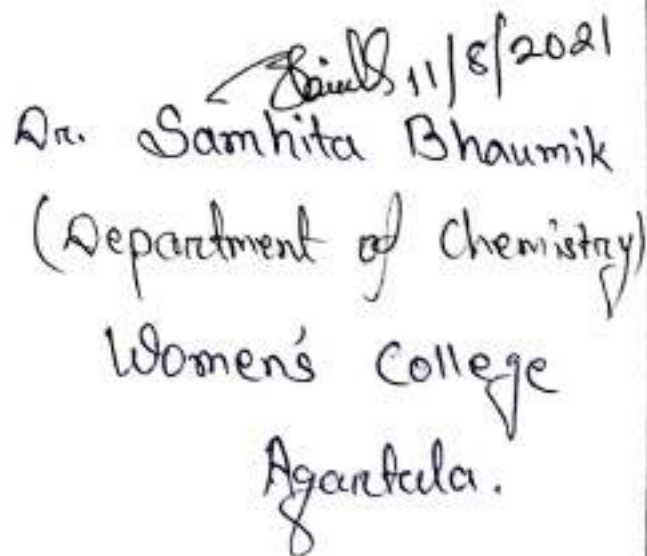 11/8/2021
Dr. Samhita Bhaumik
(Department of Chemistry)
Women's College
Agartala.